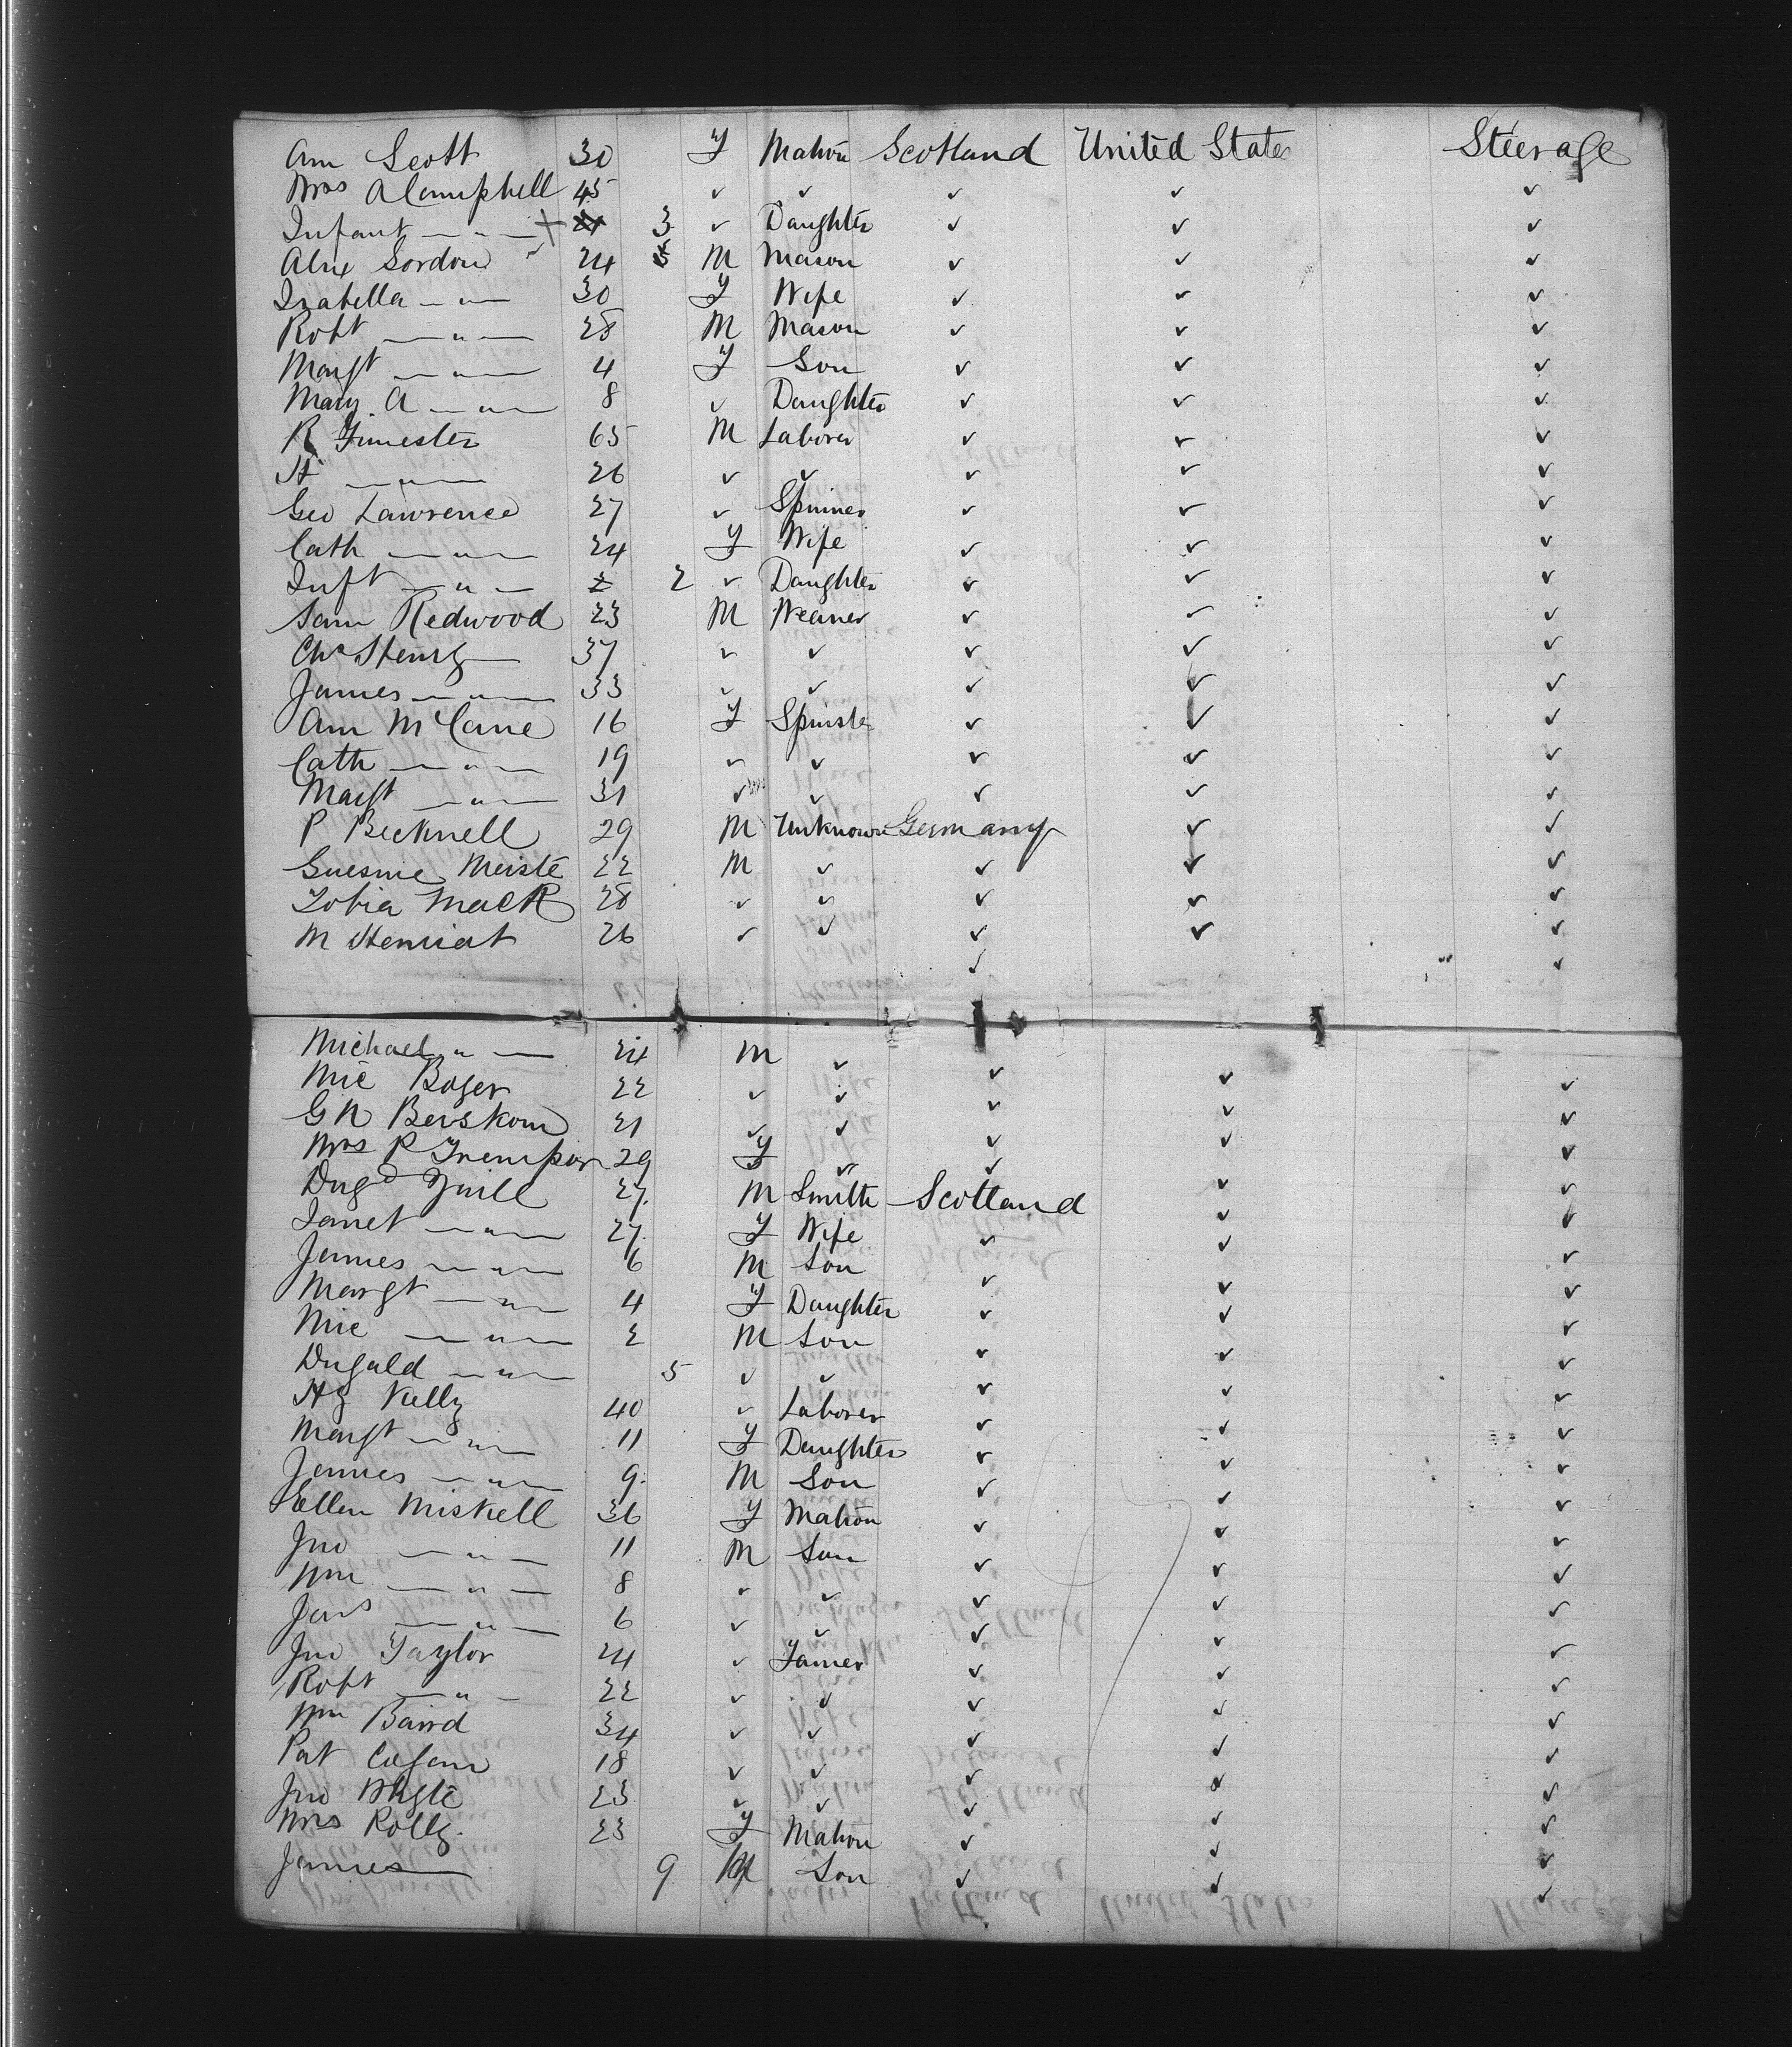 Ann Scott 30 F Matron Scotland United States Steerage
Mrs A Campbell 45 ✓ ✓ ✓ ✓ ✓
Infant — " — 3 ✓ Daughter ✓ ✓ ✓
Alex Gordon 24 M Mason ✓ ✓ ✓
Isabella — " — 30 F Wife ✓ ✓ ✓
Robt — " — 28 M Mason ✓ ✓ ✓
Margt — " — 4 F Son ✓ ✓ ✓
Mary. A — " — 8 ✓ Daughter ✓ ✓ ✓
R 65 M Laborer ✓ ✓ ✓
H — " — 26 ✓ ✓ ✓ ✓ ✓
Geo Lawrence 27 ✓ Spinner ✓ ✓ ✓
Cath — " — 24 F Wife ✓ ✓ ✓
Inft — " — 2 ✓ Daughter ✓ ✓ ✓
Sam Redwood 23 M Weaver ✓ ✓ ✓
Chs Henry 37 ✓ ✓ ✓ ✓ ✓
James — " — 33 ✓ ✓ ✓ ✓ ✓
Ann McCane 16 F Spinster ✓ ✓ ✓
Cath — " — 19 ✓ ✓ ✓ ✓ ✓
Margt — " — 31 ✓ ✓ ✓ ✓ ✓
P Becknell 29 M Unknown Germany ✓ ✓
Meiste 22 M ✓ ✓ ✓ ✓
Tobia Mack 28 ✓ ✓ ✓ ✓ ✓
M Henriat 26 ✓ ✓ ✓ ✓ ✓
✓ " ✓
Michael " — 24 M ✓ ✓ ✓ ✓
Mic Boger 22 ✓ ✓ ✓ ✓ ✓
G N Berskom 21 ✓ ✓ ✓ ✓ ✓
Mrs P 29 F ✓ ✓ ✓ ✓
Dugd Yuill 27. M Smith Scotland ✓ ✓
Janet — " — 27. F Wife ✓ ✓ ✓
James — " — 6 M Son ✓ ✓ ✓
Margt — " — 4 F Daughter ✓ ✓ ✓
Mic — " — 2 M Son ✓ ✓ ✓
Dugald — " — 5 ✓ ✓ ✓ ✓ ✓
Hy Kelly 40 ✓ Laborer ✓ ✓ ✓
Margt — " — 11 F Daughter ✓ ✓ ✓
James — " — 9. M Son ✓ ✓ ✓
Ellen Miskell 36 F Matron ✓ ✓ ✓
Jno — " — 11 M Son ✓ ✓ ✓
Wm — " — 8 ✓ ✓ ✓ ✓ ✓
Jas — " — 6 ✓ ✓ ✓ ✓ ✓
Jno Taylor 24 ✓ Farmer ✓ ✓ ✓
Robt — " — 22 ✓ ✓ ✓ ✓ ✓
Wm Baird 34 ✓ ✓ ✓ ✓ ✓
Pat 18 ✓ ✓ ✓ ✓ ✓
Jno Whyte 23 ✓ ✓ ✓ ✓ ✓
Mrs Rolly. 23 F Matron ✓ ✓ ✓
James — 9 M Son ✓ ✓ ✓